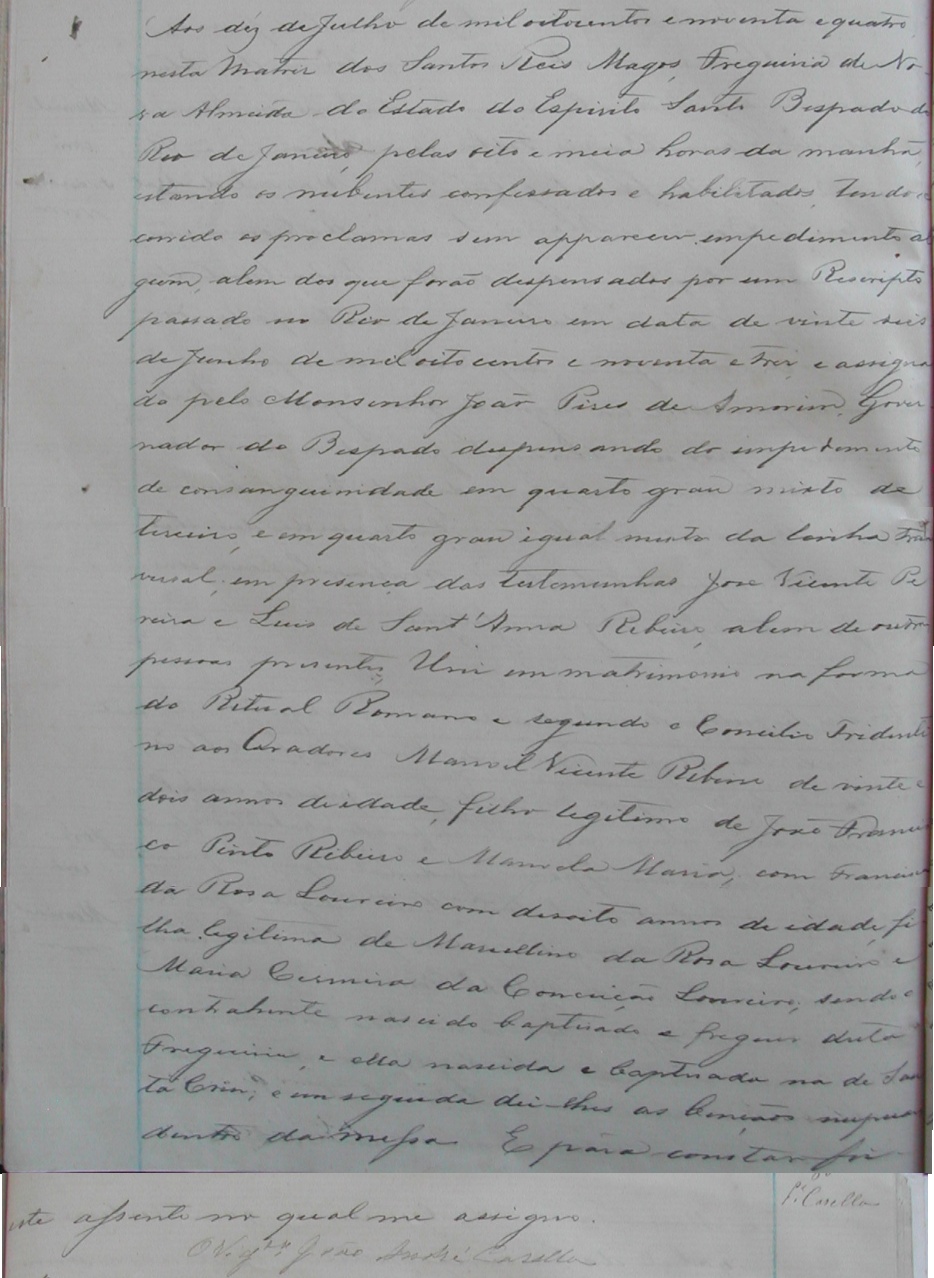 Aos déz de Julho de mil oitocentos e noventa e quatro,
nesta Matriz dos Santos Reis Magos, Freguiria de No-
va Almeida do Estado do Espirito Santo Bispado do
Rio de Janeiro pelas oito e meia horas da manhã,
estando os nubentes confessados e habilitados, tendo
corrido os proclamas sem apparecer impedimento al
gum, alem dos que forão dispensados por um Rescripto
passado no Rio de Janeiro em data de vinte seis
de Junho de mil oitocentos e noventa e trez e assigna
do pelo Monsenhor João Pires de Amorim, Gover
nador do Bispado dispensando do impedimento
de consanguinidade em quarto grau mixto de
terceiro, e em quarto grau igual mixto da linha trans
versal, em presença das testemunhas José Vicente Pe
reira e Luis de Sant'Anna Ribeiro, alem de outras
pessoas presentes, Uni em matrimonio na forma
do Ritual Romano e segundo o Concilio Tridenti
no aos Oradores Manoel Vicente Ribeiro de vinte e
dois annos de idade, filho legitimo de João Francis
co Pinto Ribeiro e Manoela Maria, com Francisca
da Rosa Loureiro com desoito annos de idade, fi
lha legitima de Marcellino da Rosa Loureiro e
Maria da Conceição Loureiro, sendo o
contrahente nascido baptisado e freguez desta
Freguiria, e ella nascida e baptisada na de San
ta Cruz, e em seguida dei-lhes as bençãos nupciaes
dentro da Missa E para constar fiz
este assento no qual me assigno.
O Vigrº João André Casella
P.e Casella